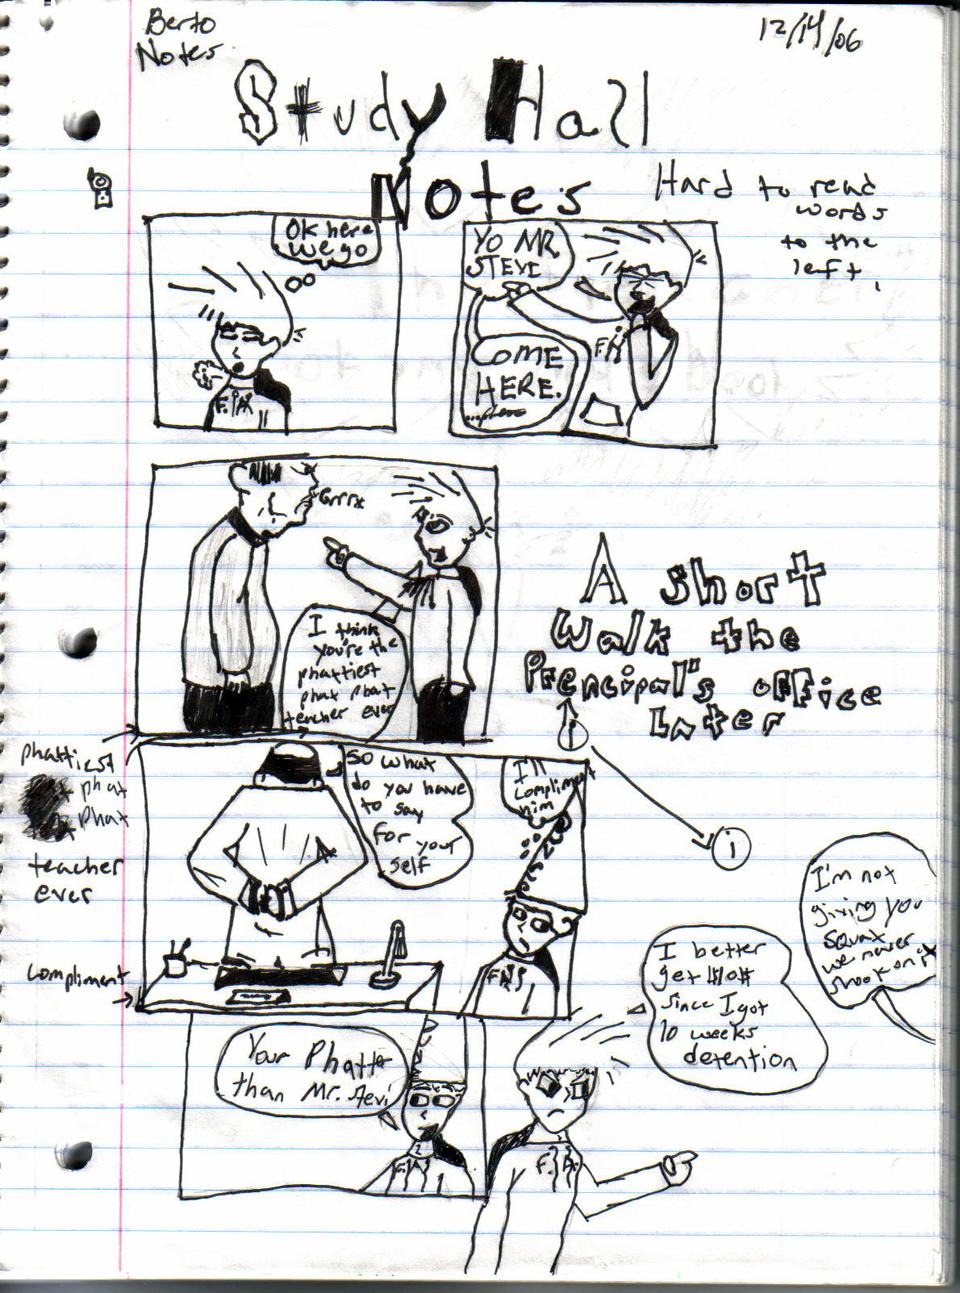 Berto
Notes
12/14/06
Study Hall
Notes
Hard to read
words
to the
left
OK here
we go
F.A
YO MR.
STEVI
COME
HERE.
F.A
Grrr
I think
you're the
phattiest
phat phat
teacher ever
A Short
Walk the
Prencipal's office
Later
phattiest
phat
phat
teacher
ever
So what
do you have
to say
for your
self
I'll
compliment
him
compliment
i
I'm not
giving you
squax
we never
shook on it
I better
get
since I got
10 weeks
detention
Your Phatter
than Mr. Stevi
F.A.